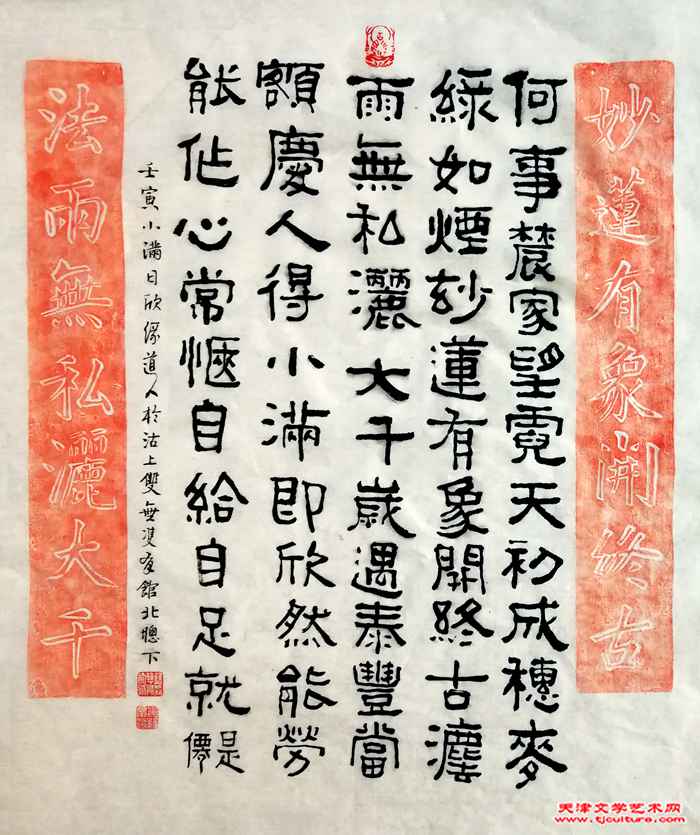 妙蓮有象開終古
何事農家望霓天初成穗麥
綠如煙妙蓮有象開終古灋
雨無私灑大千歲遇泰豐當
額慶人得小滿即欣然能勞
能作心常愜自給自足就是
僊
壬寅小滿日欣緣道人於沽上雙無雙有館北牕下
法雨無私灑大千
天津文学艺术网
www.tjculture.com